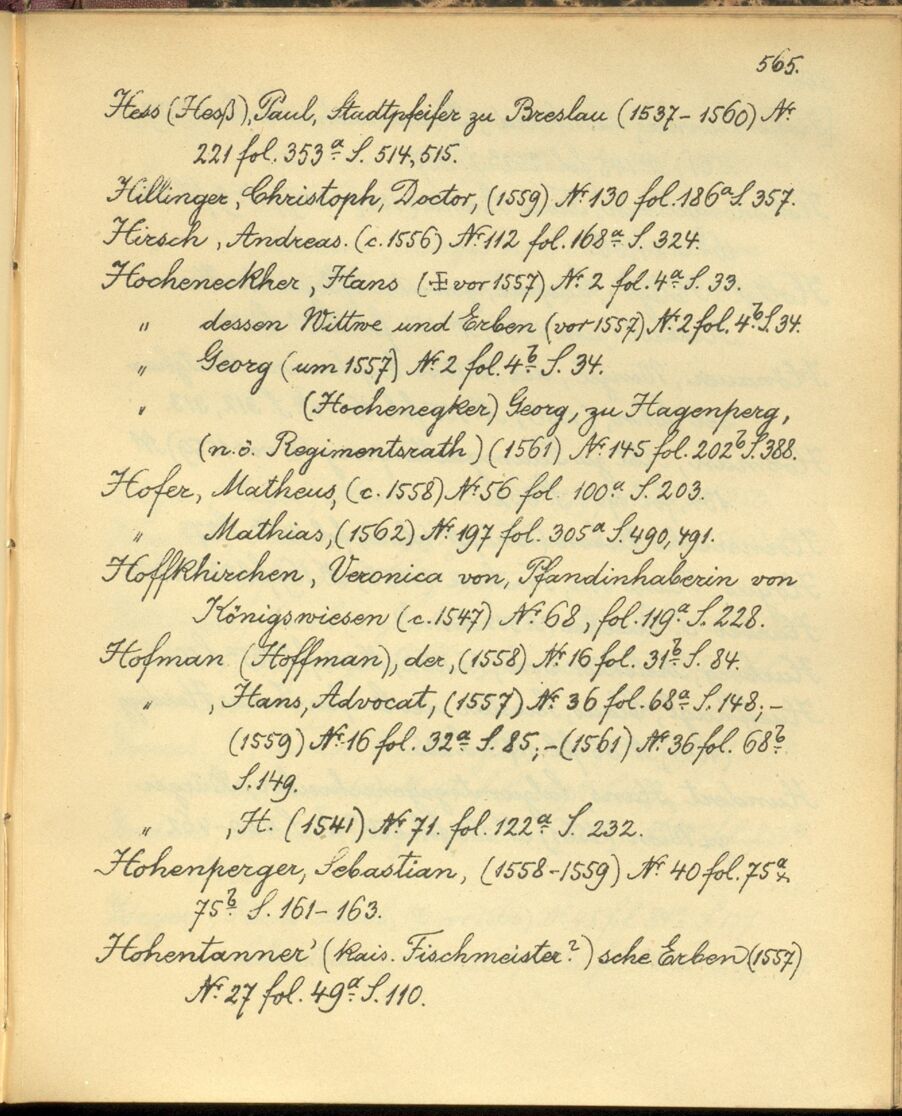 565.
Hess (Heß), Paul, Stadtpfeifer zu Breslau (1537-1560) Nr.
221 fol. 353a S. 514, 515.
Hillinger, Christoph, Doctor, (1559) Nr. 130 fol. 186a S. 357.
Hirsch, Andreas. (c. 1556) Nr. 112 fol. 168a S. 324.
Hocheneckher, Hans (‡ vor 1557) Nr. 2 fol. 4a S. 33.
" dessen Wittwe und Erben (vor 1557) Nr. 2 fol. 4b S. 34.
" Georg (um 1557) Nr. 2 fol. 4b S. 34.
" (Hochenegker) Georg, zu Hagenperg,
(n. ö. Regimentsrath) (1561) Nr. 145 fol. 202b S. 388.
Hofer, Matheus, (c. 1558) Nr. 56 fol. 100a S. 203.
" Mathias, (1562) Nr. 197 fol. 305a S. 490, 491.
Hoffkhirchen, Veronica von, Pfandinhaberin von
Königswiesen (c. 1547) Nr. 68, fol. 119a S. 228.
Hofman (Hoffman), der, (1558) Nr. 16 fol. 31b S. 84.
" , Hans, Advocat, (1557) Nr. 36 fol. 68a S. 148; -
(1559) Nr. 16 fol. 32a S. 85; - (1561) Nr. 36 fol. 68b
S. 149.
" , H. (1541) Nr. 71. fol. 122a S. 232.
Hohenperger, Sebastian, (1558-1559) Nr. 40 fol. 75a +
75b S. 161-163.
Hohentanner' (kais. Fischmeister?) sche Erben (1557)
Nr. 27 fol. 49a S. 110.